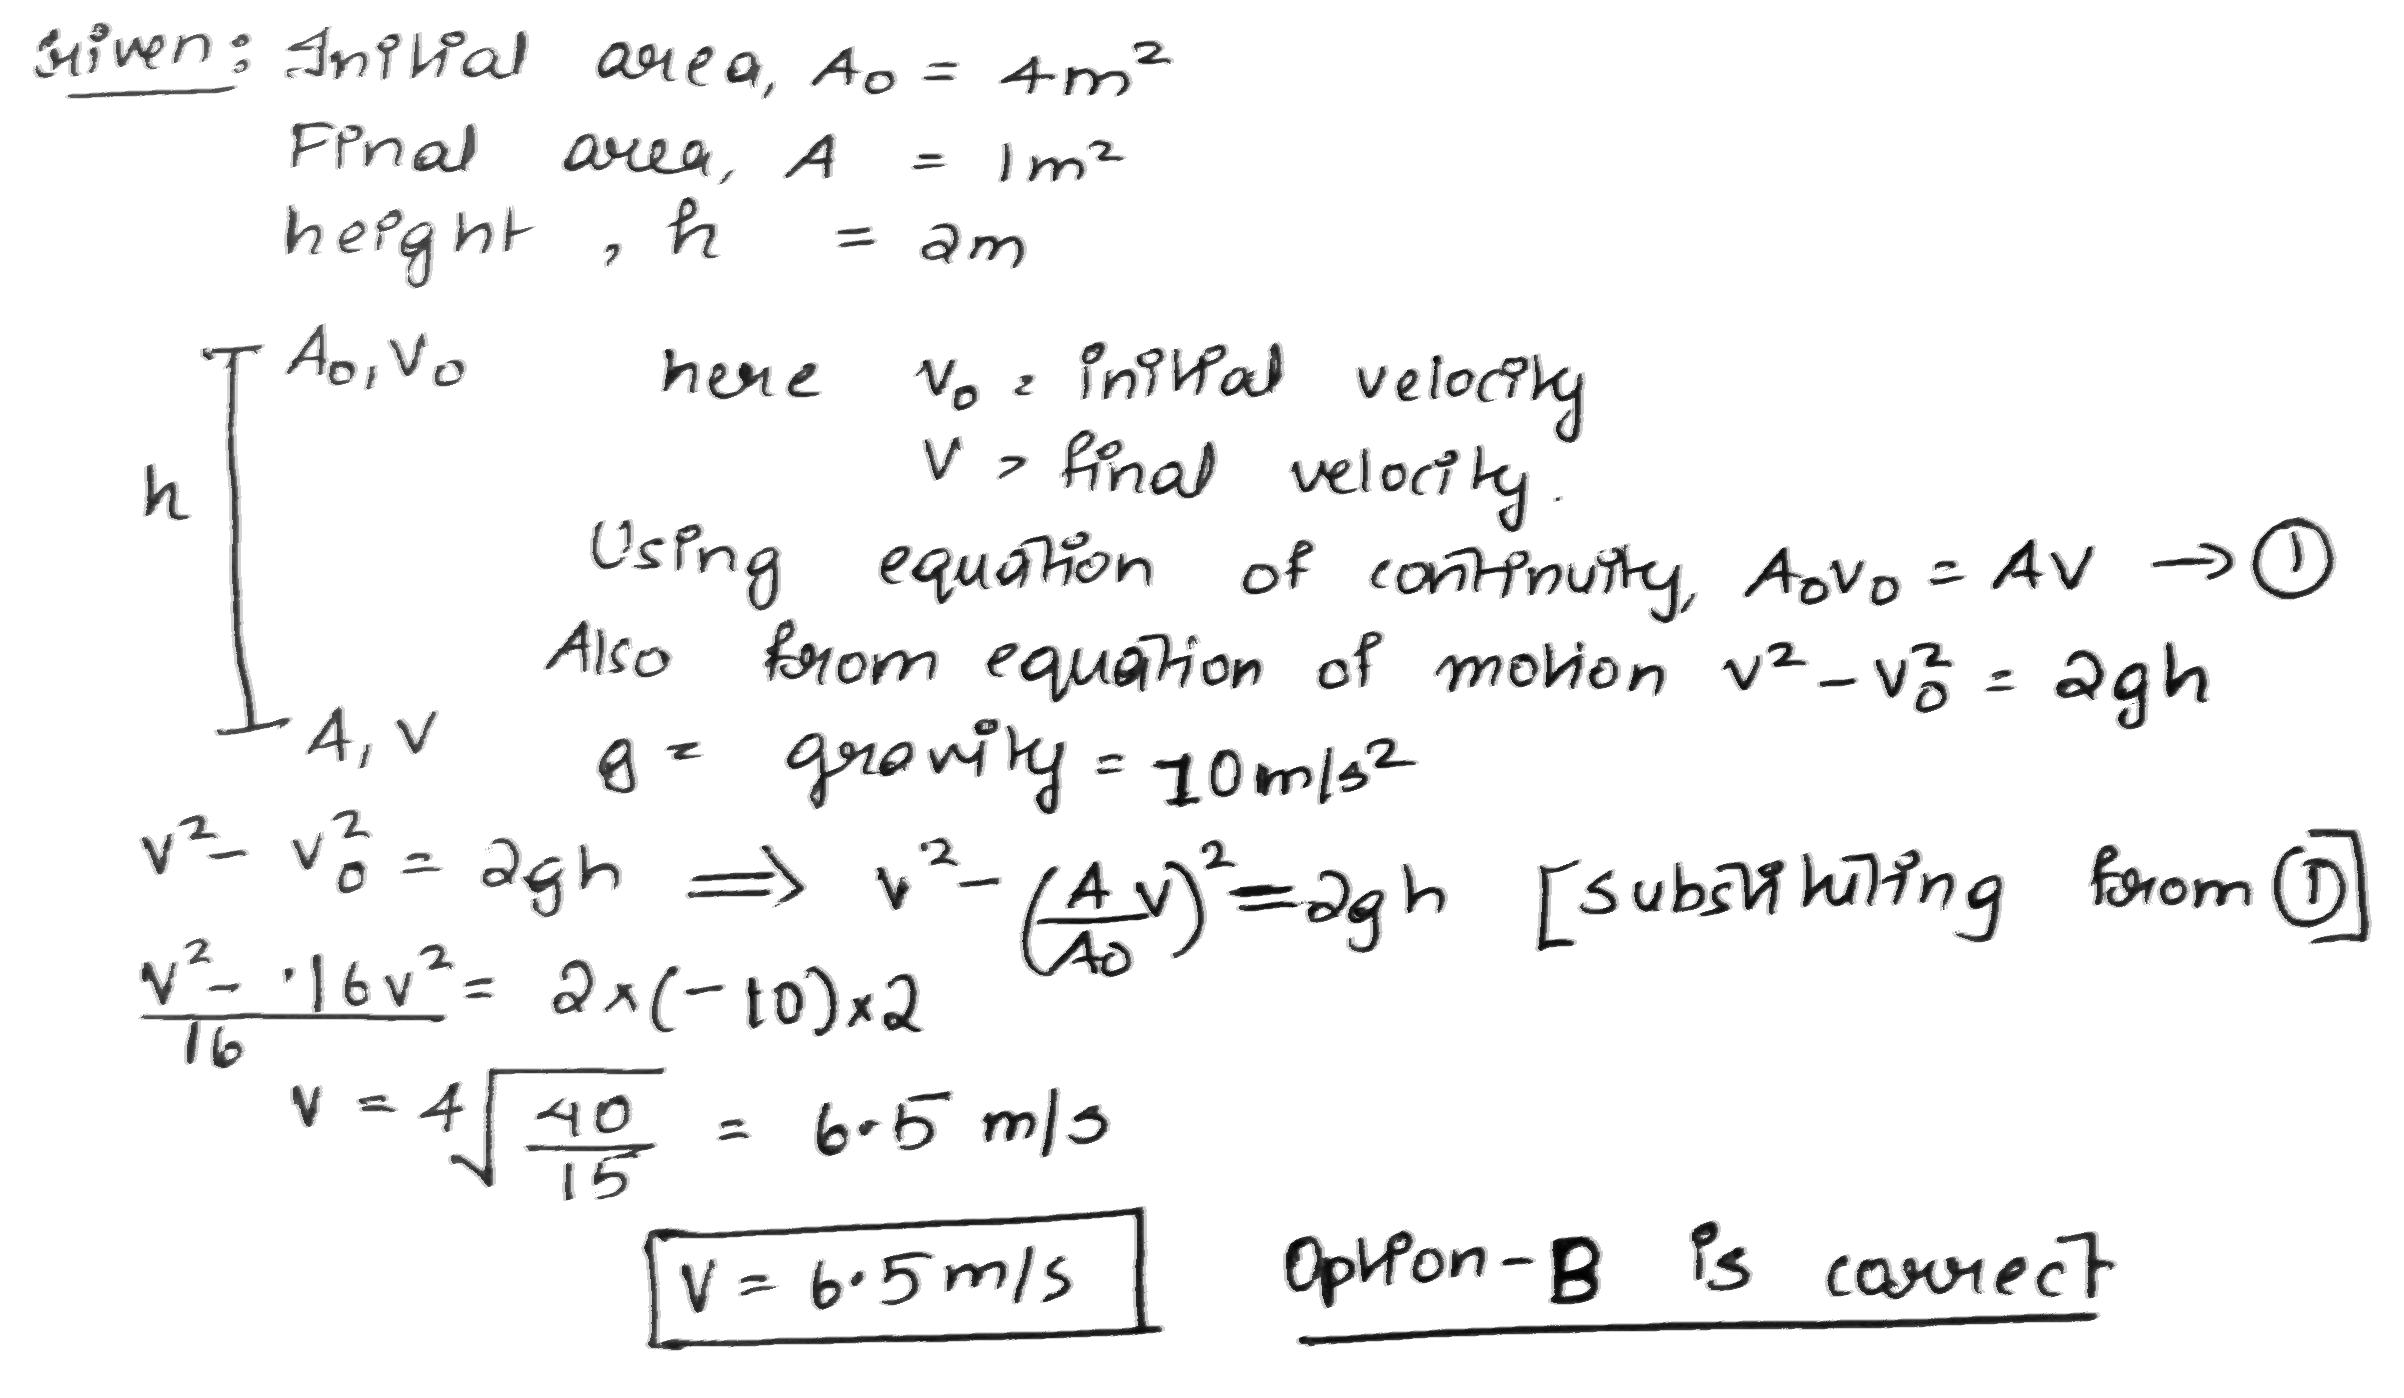 Given: Initial area, A₀ = 4m²
Final area, A = 1m²
height, h = 2m
A₀, V₀
here v₀ = initial velocity
V = final velocity.
h
Using equation of continuity, A₀V₀ = AV → ①
Also from equation of motion v² - v₀² = 2gh
A, V
g = gravity = 10m/s²
v² - v₀² = 2gh ⟹ v² - (A/A₀ v)² = 2gh [substituting from ①]
(v² - .16v²)/16 = 2×(-10)×2
v = 4√(40/15) = 6.5 m/s
V = 6.5 m/s
Option-B is correct